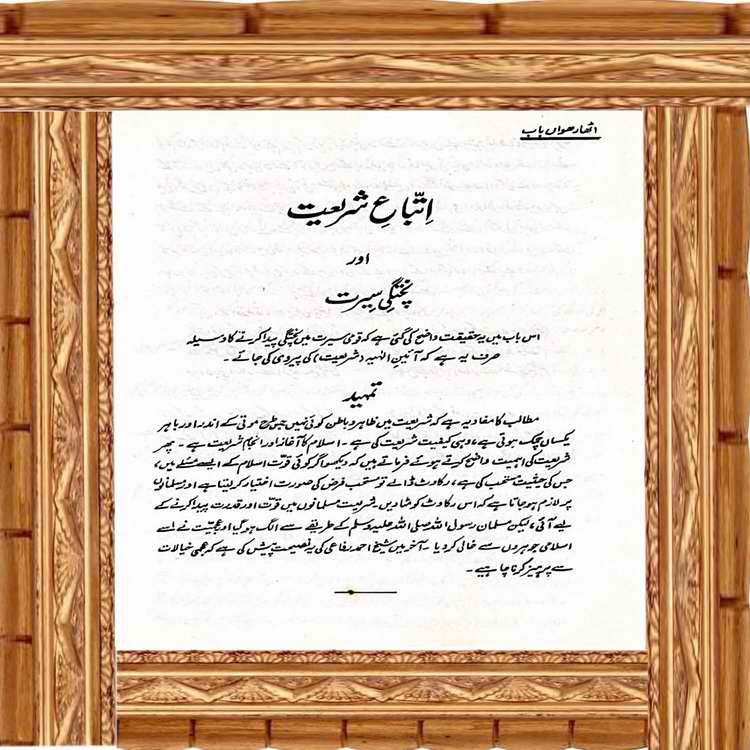 اٹھارھواں باب
اِتّباعِ شریعت
اور
پختگیِ سیرت
اس باب میں یہ حقیقت واضح کی گئی ہے کہ قومی سیرت میں پختگی پیدا کرنے کا وسیلہ
صرف یہ ہے کہ آئینِ الٰہیہ (شریعت) کی پیروی کی جائے۔
تمہید
مطالب کا مفاد یہ ہے کہ شریعت میں ظاہر و باطن کوئی نہیں جس طرح موتی کے اندر اور باہر
یکساں چمک ہوتی ہے، وہی کیفیت شریعت کی ہے۔ اسلام کا آغاز اور انجام شریعت ہے۔ پھر
شریعت کی اہمیت واضح کرتے ہوئے فرماتے ہیں کہ دیکھو اگر کوئی قوّت اسلام کے ایسے مسئلے میں،
جس کی حیثیت مستحب کی ہے، رکاوٹ ڈالے تو مستحب فرض کی صورت اختیار کر لیتا ہے اور مسلمانوں
پر لازم ہو جاتا ہے کہ اس رکاوٹ کو مٹا دیں۔ شریعت مسلمانوں میں قوّت اور قدرت پیدا کرنے کے
لیے آئی، لیکن مسلمان رسول اللہ صلی اللہ علیہ وسلم کے طریقے سے الگ ہو گیا اور عجمیّت نے اسے
اسلامی جوہروں سے خالی کر دیا۔ آخر میں شیخ احمد رفاعی کی یہ نصیحت پیش کی ہے کہ عجمی خیالات
سے پرہیز کرنا چاہیے۔